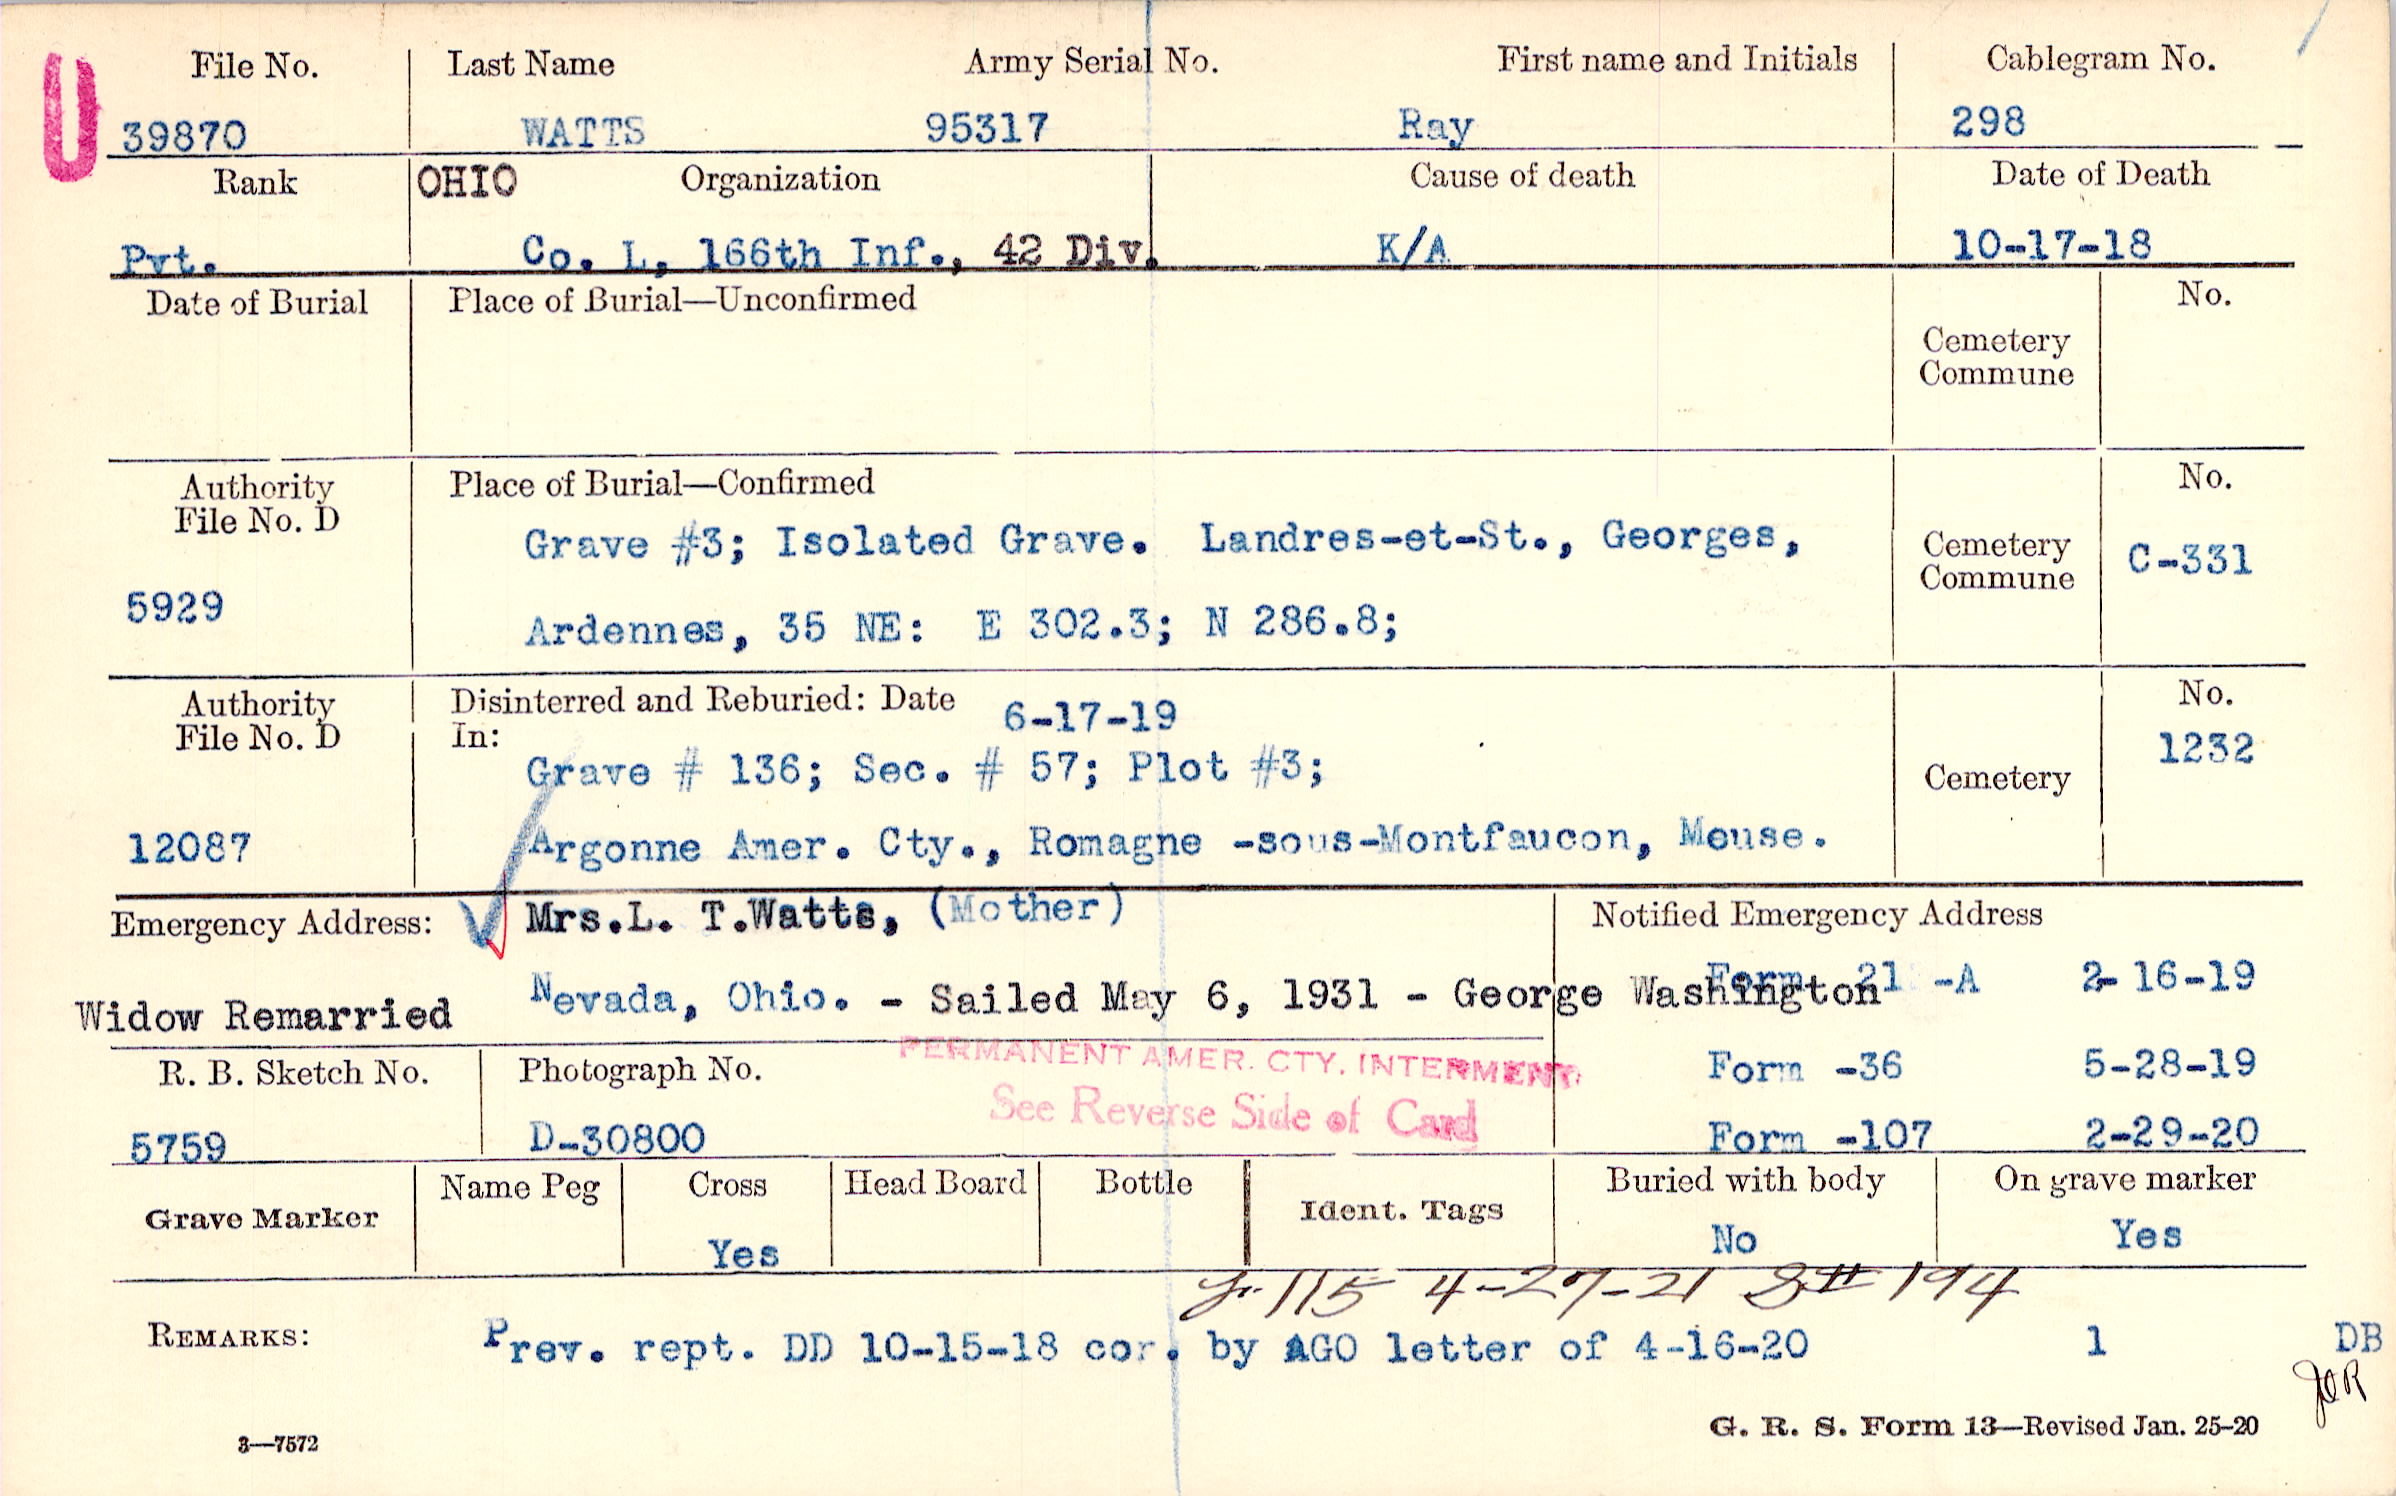 U
File No. Last Name Army Serial No. First name and Initials Cablegram No.
39870 WATTS 95317 Ray 298
Rank OHIO Organization Cause of death Date of Death
Pvt. Co. L, 166th Inf., 42 Div. K/A 10-17-18
Date of Burial Place of Burial—Unconfirmed No.
Cemetery
Commune
Authority Place of Burial—Confirmed No.
File No. D
Grave #3; Isolated Grave. Landres-et-St., Georges,
Cemetery
Commune C-331
5929
Ardennes, 35 NE: E 302.3; N 286.8;
Authority Disinterred and Reburied: Date 6-17-19 No.
File No. D In:
Grave # 136; Sec. # 57; Plot #3; 1232
Cemetery
12087 Argonne Amer. Cty., Romagne -sous-Montfaucon, Meuse.
Emergency Address: Mrs.L. T.Watts, (Mother) Notified Emergency Address
Nevada, Ohio. - Sailed May 6, 1931 - George Washington
Form 21 -A 2-16-19
Widow Remarried
PERMANENT AMER. CTY. INTERMENT
R. B. Sketch No. Photograph No. Form -36 5-28-19
See Reverse Side of Card
5759 D-30800 Form -107 2-29-20
Grave Marker Name Peg Cross Head Board Bottle Ident. Tags Buried with body On grave marker
Yes No Yes
115 4-27-21 194
REMARKS: Prev. rept. DD 10-15-18 cor. by AGO letter of 4-16-20 1 DB
JOR
3—7572
G. R. S. Form 13—Revised Jan. 25-20